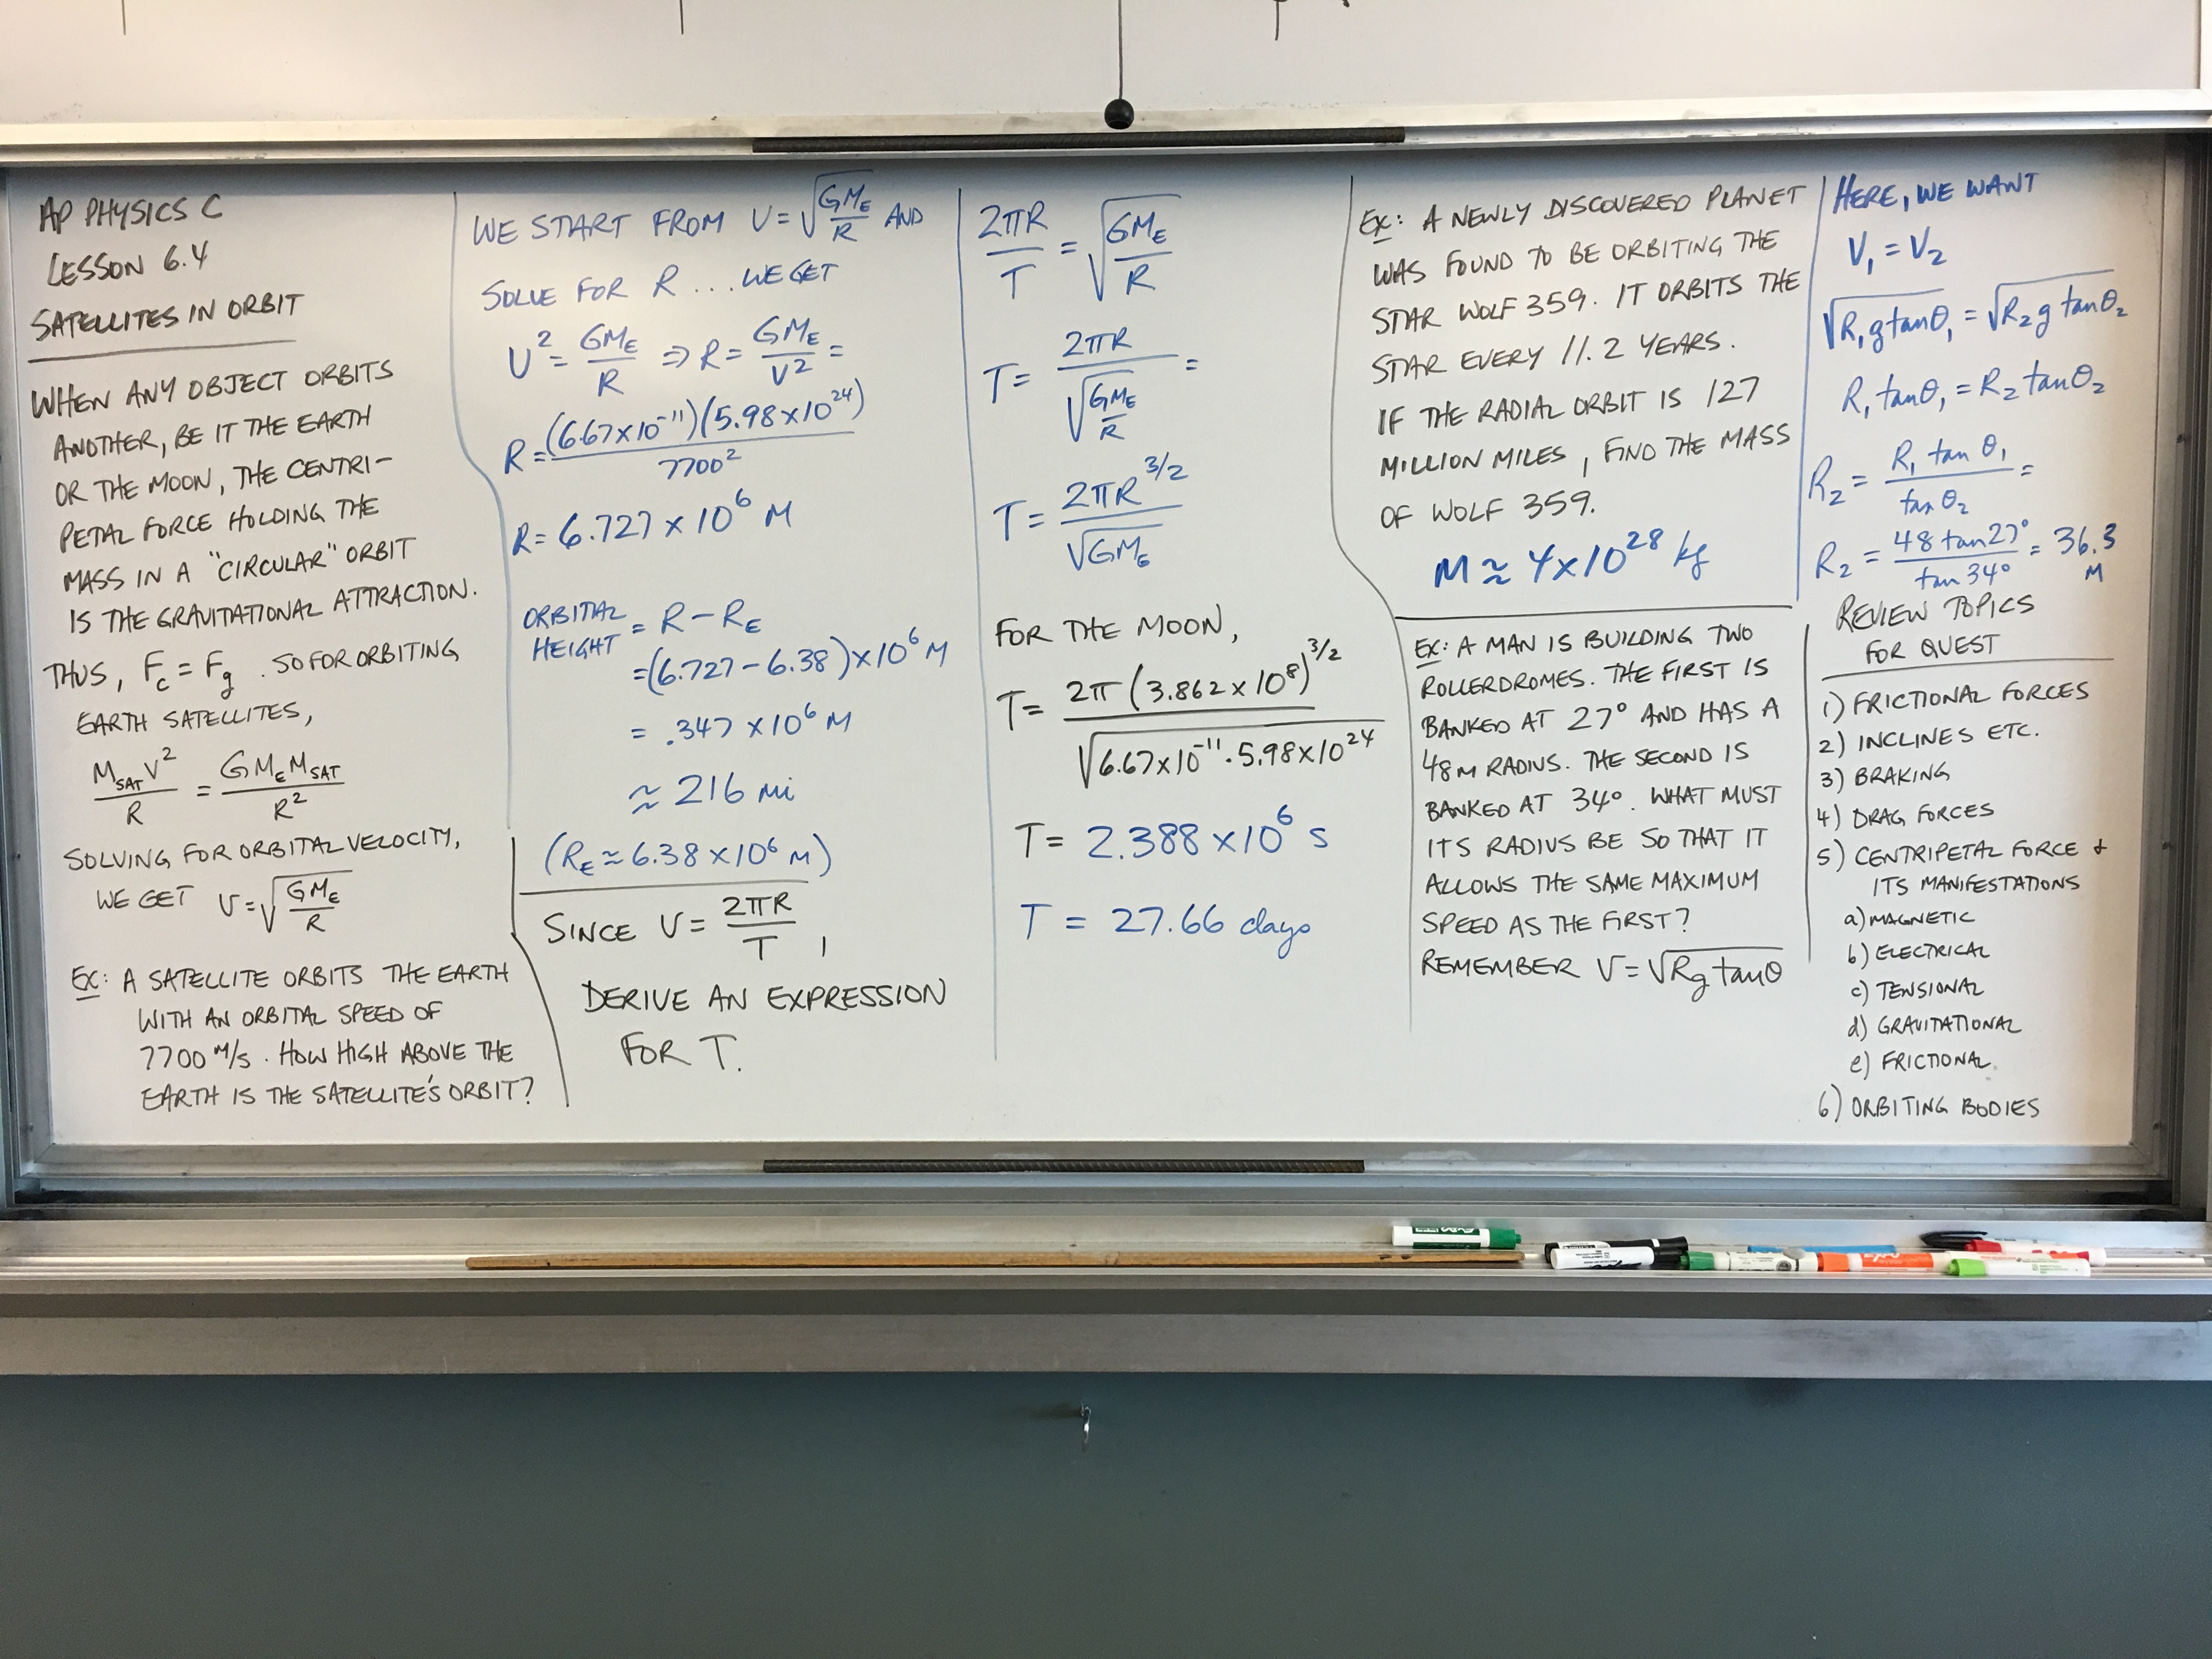 AP PHYSICS C
LESSON 6.4
SATELLITES IN ORBIT
WHEN ANY OBJECT ORBITS
ANOTHER, BE IT THE EARTH
OR THE MOON, THE CENTRI-
PETAL FORCE HOLDING THE
MASS IN A "CIRCULAR" ORBIT
IS THE GRAVITATIONAL ATTRACTION.
THUS, Fc = Fg. SO FOR ORBITING
EARTH SATELLITES,
M_SAT V²/R = G M_E M_SAT/R²
SOLVING FOR ORBITAL VELOCITY,
WE GET V = √(GM_E/R)
EX: A SATELLITE ORBITS THE EARTH
WITH AN ORBITAL SPEED OF
7700 M/S. HOW HIGH ABOVE THE
EARTH IS THE SATELLITE'S ORBIT?
WE START FROM V = √(GM_E/R) AND
SOLVE FOR R ... WE GET
V² = GM_E/R ⇒ R = GM_E/V² =
R = (6.67×10⁻¹¹)(5.98×10²⁴)/7700²
R = 6.727 × 10⁶ M
ORBITAL HEIGHT = R − R_E
= (6.727 − 6.38) × 10⁶ M
= .347 × 10⁶ M
≈ 216 mi
(R_E ≈ 6.38 × 10⁶ M)
SINCE V = 2πR/T,
DERIVE AN EXPRESSION
FOR T.
2πR/T = √(GM_E/R)
T = 2πR/√(GM_E/R) =
T = 2πR^3/2/√(GM_E)
FOR THE MOON,
T = 2π(3.862×10⁸)^3/2/√(6.67×10⁻¹¹·5.98×10²⁴)
T = 2.388 × 10⁶ s
T = 27.66 days
EX: A NEWLY DISCOVERED PLANET
WAS FOUND TO BE ORBITING THE
STAR WOLF 359. IT ORBITS THE
STAR EVERY 11.2 YEARS.
IF THE RADIAL ORBIT IS 127
MILLION MILES, FIND THE MASS
OF WOLF 359.
M ≈ 4×10²⁸ kg
EX: A MAN IS BUILDING TWO
ROLLERDROMES. THE FIRST IS
BANKED AT 27° AND HAS A
48 M RADIUS. THE SECOND IS
BANKED AT 34°. WHAT MUST
ITS RADIUS BE SO THAT IT
ALLOWS THE SAME MAXIMUM
SPEED AS THE FIRST?
REMEMBER V = √(Rg tanθ)
HERE, WE WANT
V₁ = V₂
√(R₁g tanθ₁) = √(R₂g tanθ₂)
R₁ tanθ₁ = R₂ tanθ₂
R₂ = R₁ tan θ₁/tan θ₂ =
R₂ = 48 tan 27°/tan 34° = 36.3 M
REVIEW TOPICS
FOR QUEST
1) FRICTIONAL FORCES
2) INCLINES ETC.
3) BRAKING
4) DRAG FORCES
5) CENTRIPETAL FORCE +
ITS MANIFESTATIONS
a) MAGNETIC
b) ELECTRICAL
c) TENSIONAL
d) GRAVITATIONAL
e) FRICTIONAL
6) ORBITING BODIES